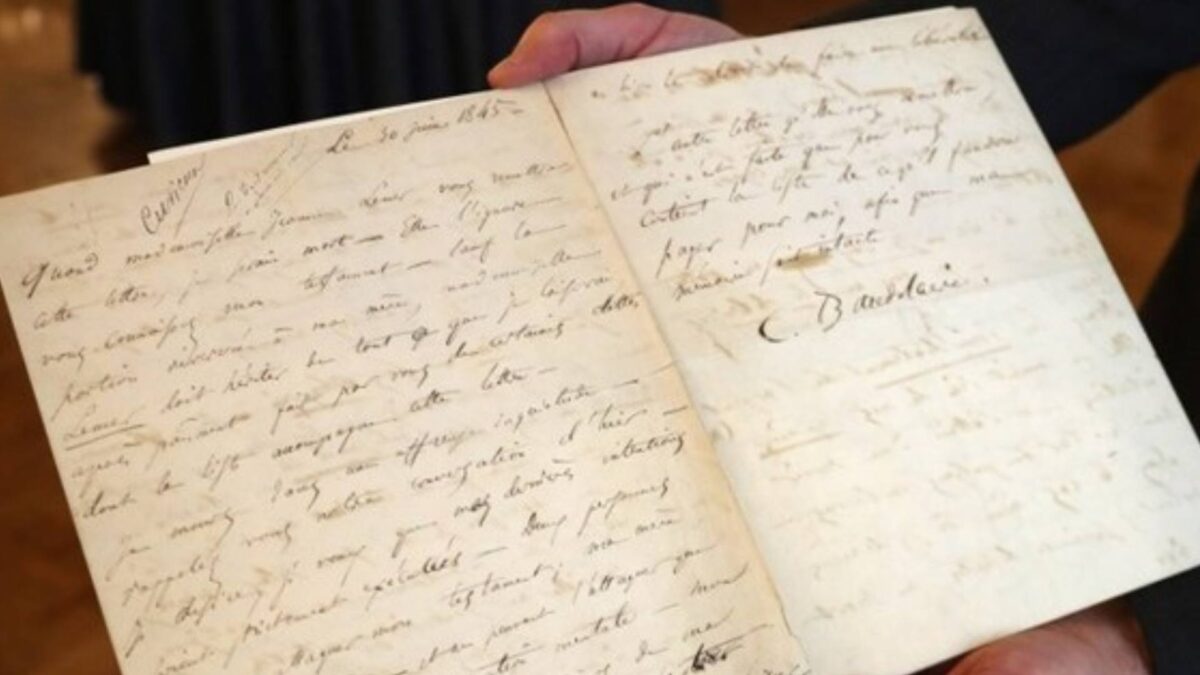 Le 30 juin 1845 —
Quand mademoiselle Jeanne Lemer vous remettra
cette lettre, je serai mort — Elle l'ignore
vous connaissez mon testament — Sauf la
portion réservée à ma mère, mademoiselle
Lemer doit hériter de tout ce que je laisserai
après paiement fait par vous de certaines dettes
dont la liste accompagne cette lettre —
je meurs dans une affreuse inquiétude —
rappelez vous notre conversation d'hier —
je désire, je veux que mes dernières intentions
soient strictement exécutées — Deux personnes
attaquer mon testament; ma mère
et ne peuvent l'attaquer que
mentale — mon
de ma
faire
autre lettre qu'elle vous remettra
et qui n'est faite que pour vous
contient la liste de ce qu'il faudra
payer pour moi, afin que ma
mémoire soit intacte
C. Baudelaire.